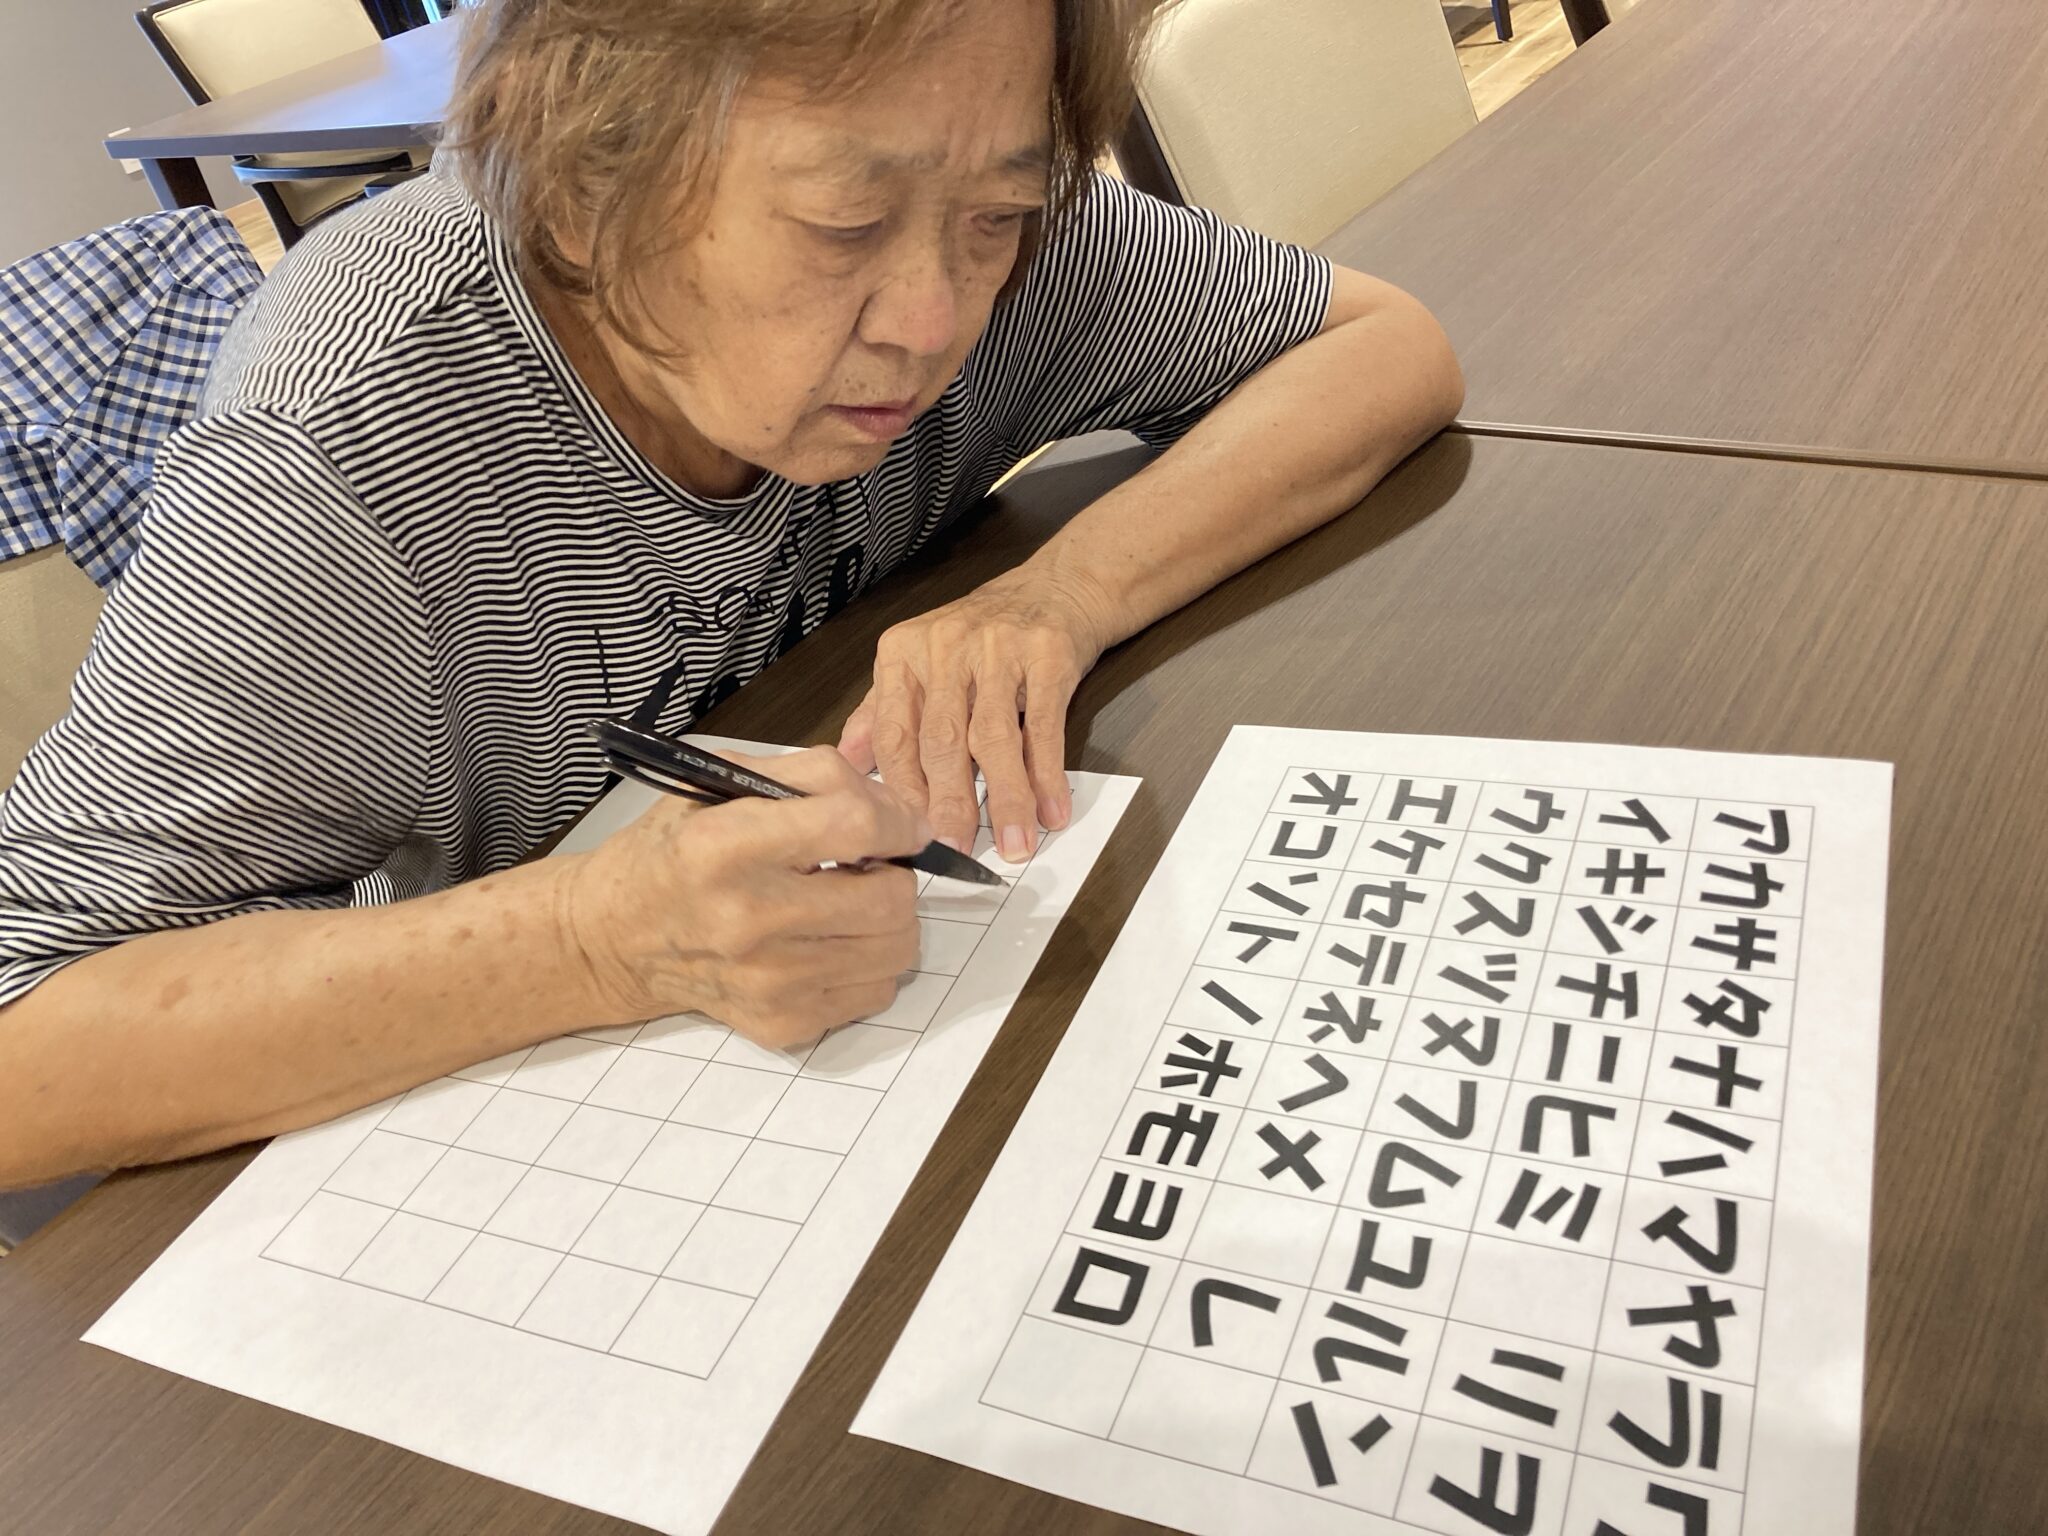 アカサタナハマヤラワ
イキシチニヒミリヲ
ウクスツヌフムユルン
エケセテネヘメレ
オコソトノホモヨロ
STAEDTLER